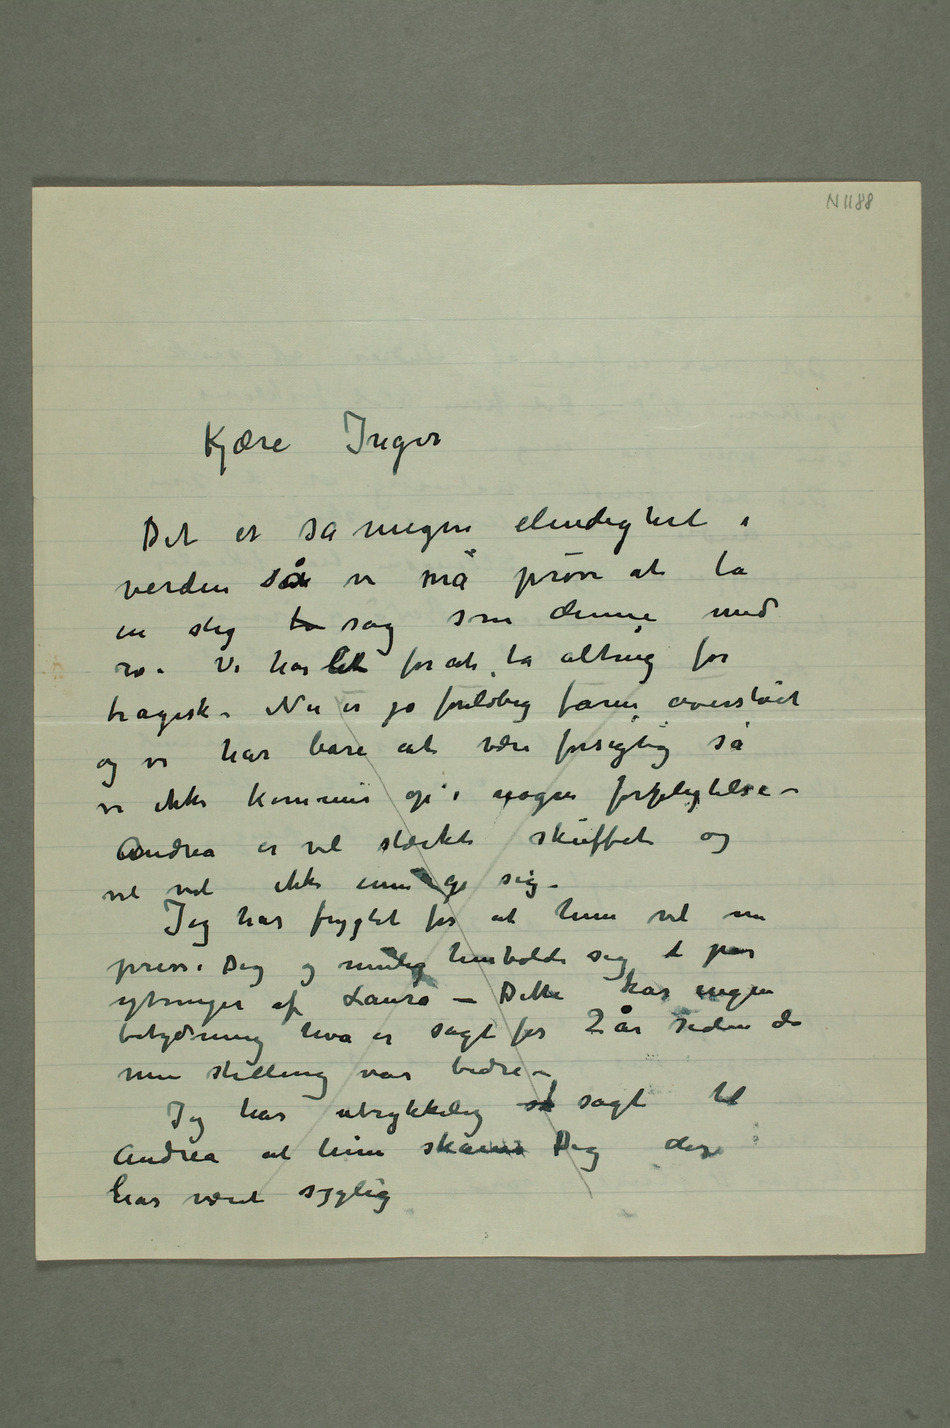 N 1188
Kjære Inger
Det er så megen elendighet i
verden så vi må prøve at ta
en slig sag som denne med
ro. Vi har let for at ta alting for
tragisk. Nu er jo foreløbig faren overstået
og vi har bare at være forsigtig så
vi ikke kommer op i nogen forpligtelse –
Andrea er vel stærkt skuffet og
vil vel ikke gi sig.
Jeg har frygtet for at hun vil nu
presse Dig og mulig henholde sig t par
ytringer af Laura – Dette har ingen
betydning hva er sagt for 2 år siden da
min stilling var bedre –
Jeg har utrykkelig sagt til
Andrea at hun skåner Dig der
har været syglig